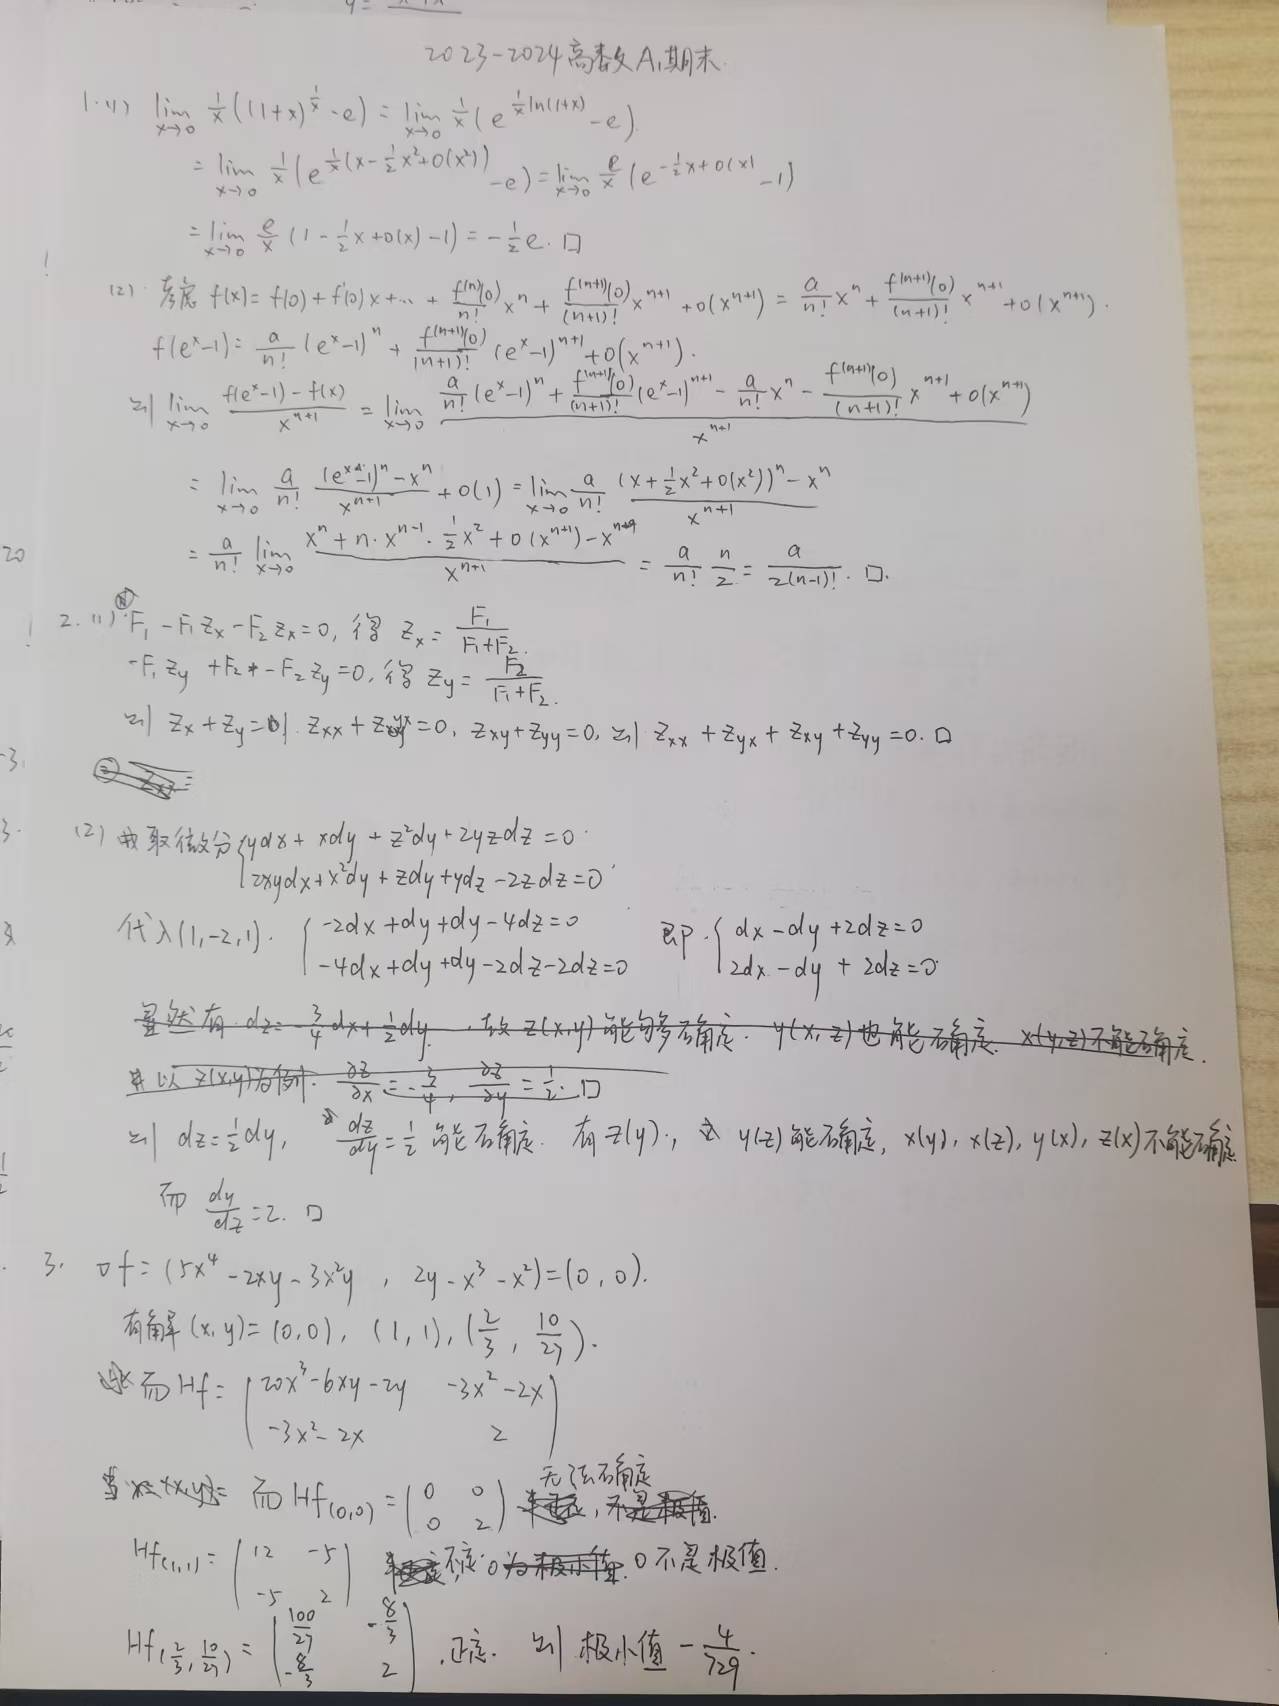 2023-2024高数A₁期末.
1.(1) lim_{x→0} 1/x((1+x)^{1/x}-e) = lim_{x→0} 1/x(e^{1/x ln(1+x)}-e).
= lim_{x→0} 1/x(e^{1/x(x-1/2x²+o(x²))}-e) = lim_{x→0} e/x(e^{-1/2x+o(x)}-1)
= lim_{x→0} e/x(1-1/2x+o(x)-1) = -1/2e. □
(2) 考虑 f(x)=f(0)+f'(0)x+…+f^{(n)}(0)/n! x^n+f^{(n+1)}(0)/(n+1)! x^{n+1}+o(x^{n+1}) = a/n! x^n+f^{(n+1)}(0)/(n+1)! x^{n+1}+o(x^{n+1}).
f(e^x-1)=a/n!(e^x-1)^n+f^{(n+1)}(0)/(n+1)!(e^x-1)^{n+1}+o(x^{n+1}).
则 lim_{x→0} (f(e^x-1)-f(x))/x^{n+1} = lim_{x→0} (a/n!(e^x-1)^n+f^{(n+1)}(0)/(n+1)!(e^x-1)^{n+1}-a/n! x^n-f^{(n+1)}(0)/(n+1)! x^{n+1}+o(x^{n+1}))/x^{n+1}
= lim_{x→0} a/n! ((e^x-1)^n-x^n)/x^{n+1}+o(1) = lim_{x→0} a/n! ((x+1/2x²+o(x²))^n-x^n)/x^{n+1}
= a/n! lim_{x→0} (x^n+n·x^{n-1}·1/2x²+o(x^{n+1})-x^n)/x^{n+1} = a/n! n/2 = a/(2(n-1)!). □.
2.(1) F₁-F₁z_x-F₂z_x=0, 得 z_x=F₁/(F₁+F₂).
-F₁z_y+F₂-F₂z_y=0, 得 z_y=F₂/(F₁+F₂).
则 z_x+z_y=1. z_xx+z_yx=0, z_xy+z_yy=0, 则 z_xx+z_yx+z_xy+z_yy=0. □
(2) 取微分 { ydx+xdy+z²dy+2yzdz=0
2xydx+x²dy+zdy+ydz-2zdz=0
代入(1,-2,1). { -2dx+dy+dy-4dz=0 即. { dx-dy+2dz=0
-4dx+dy+dy-2dz-2dz=0 2dx-dy+2dz=0
显然有 dz=-3/4dx+1/2dy. 故 z(x,y)能够多确定. y(x,z)也能确定. x(y,z)不能确定.
以 z(x,y)为例. ∂z/∂x=-3/4, ∂z/∂y=1/2. □
则 dz=1/2dy, dz/dy=1/2 能确定. 有z(y), y(z)能确定, x(y), x(z), y(x), z(x)不能确定.
而 dy/dz=2. □
3. ∇f=(5x⁴-2xy-3x²y, 2y-x³-x²)=(0,0).
有解(x,y)=(0,0), (1,1), (2/3, 10/27).
而Hf=(20x³-6xy-2y -3x²-2x
-3x²-2x 2)
而Hf(0,0)=(0 0 无法确定
0 2)
Hf(1,1)=(12 -5 不定. 0不是极值.
-5 2)
Hf(2/3,10/27)=(100/27 -8/3
-8/3 2). 正定. 则 极小值 -4/729.